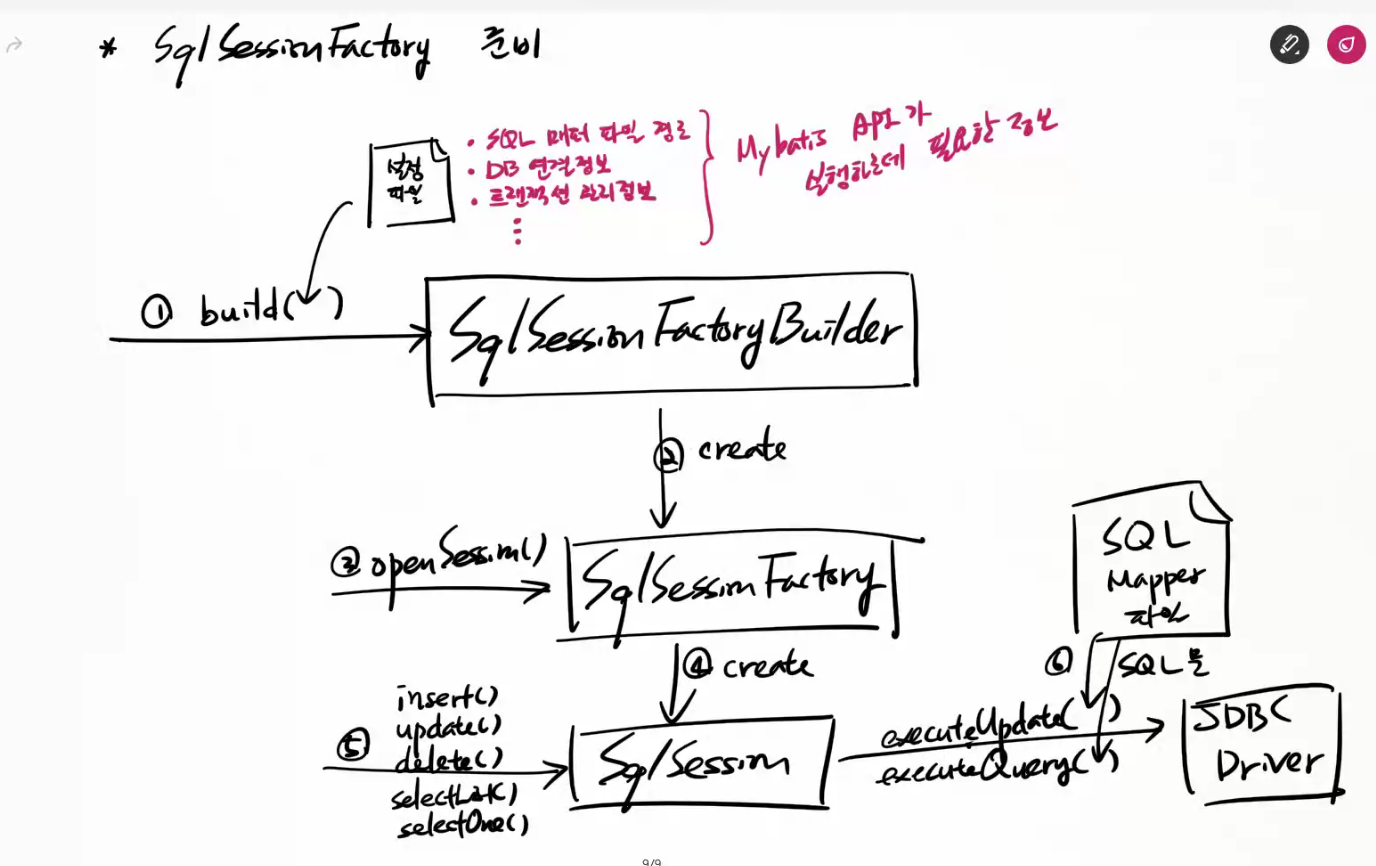 * SqlSessionFactory 준비
설정
파일
• SQL 매퍼 파일 경로
• DB 연결정보
• 트랜잭션 관리정보
⋮
Mybatis API가
실행하는데 필요한 정보
① build( )
SqlSessionFactoryBuilder
② create
③ openSession()
SqlSessionFactory
④ create
⑤
insert()
update()
delete()
selectList()
selectOne()
SqlSession
SQL
Mapper
파일
⑥ SQL문
executeUpdate( )
executeQuery( )
JDBC
Driver
9/9